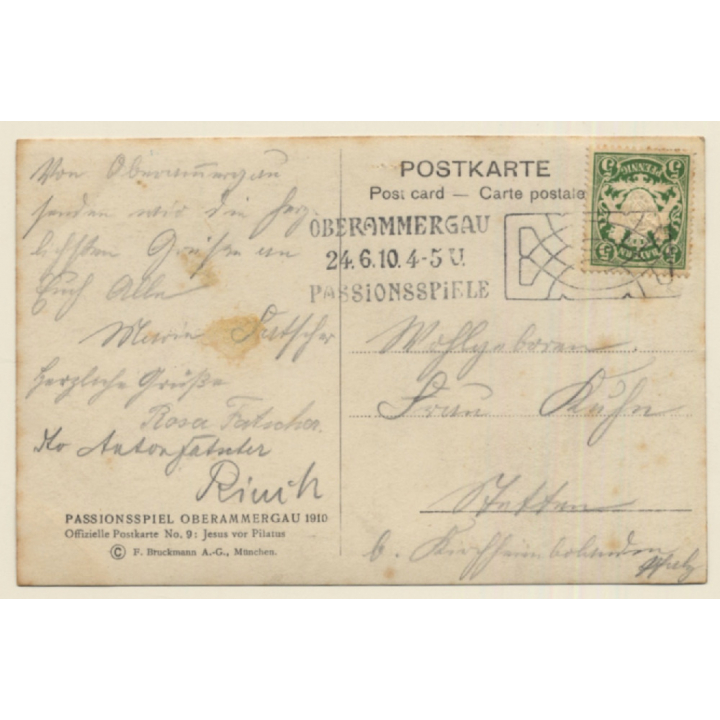 Von Oberammergau
senden wir die herz-
lichsten Grüße an
Euch Alle
Marie Fatscher
Herzliche Grüße
Rosa Fatscher.
Anton
PASSIONSSPIEL OBERAMMERGAU 1910
Offizielle Postkarte No. 9: Jesus vor Pilatus
© F. Bruckmann A.-G., München.
POSTKARTE
Post card — Carte postale
OBERAMMERGAU
24.6.10.4-5 U.
PASSIONSSPIELE
5 PFENNIG 5
5 BAYERN 5
Wohlgeboren
Frau Kuhn
Stetten
b. Kirchheimbolanden
Pfalz